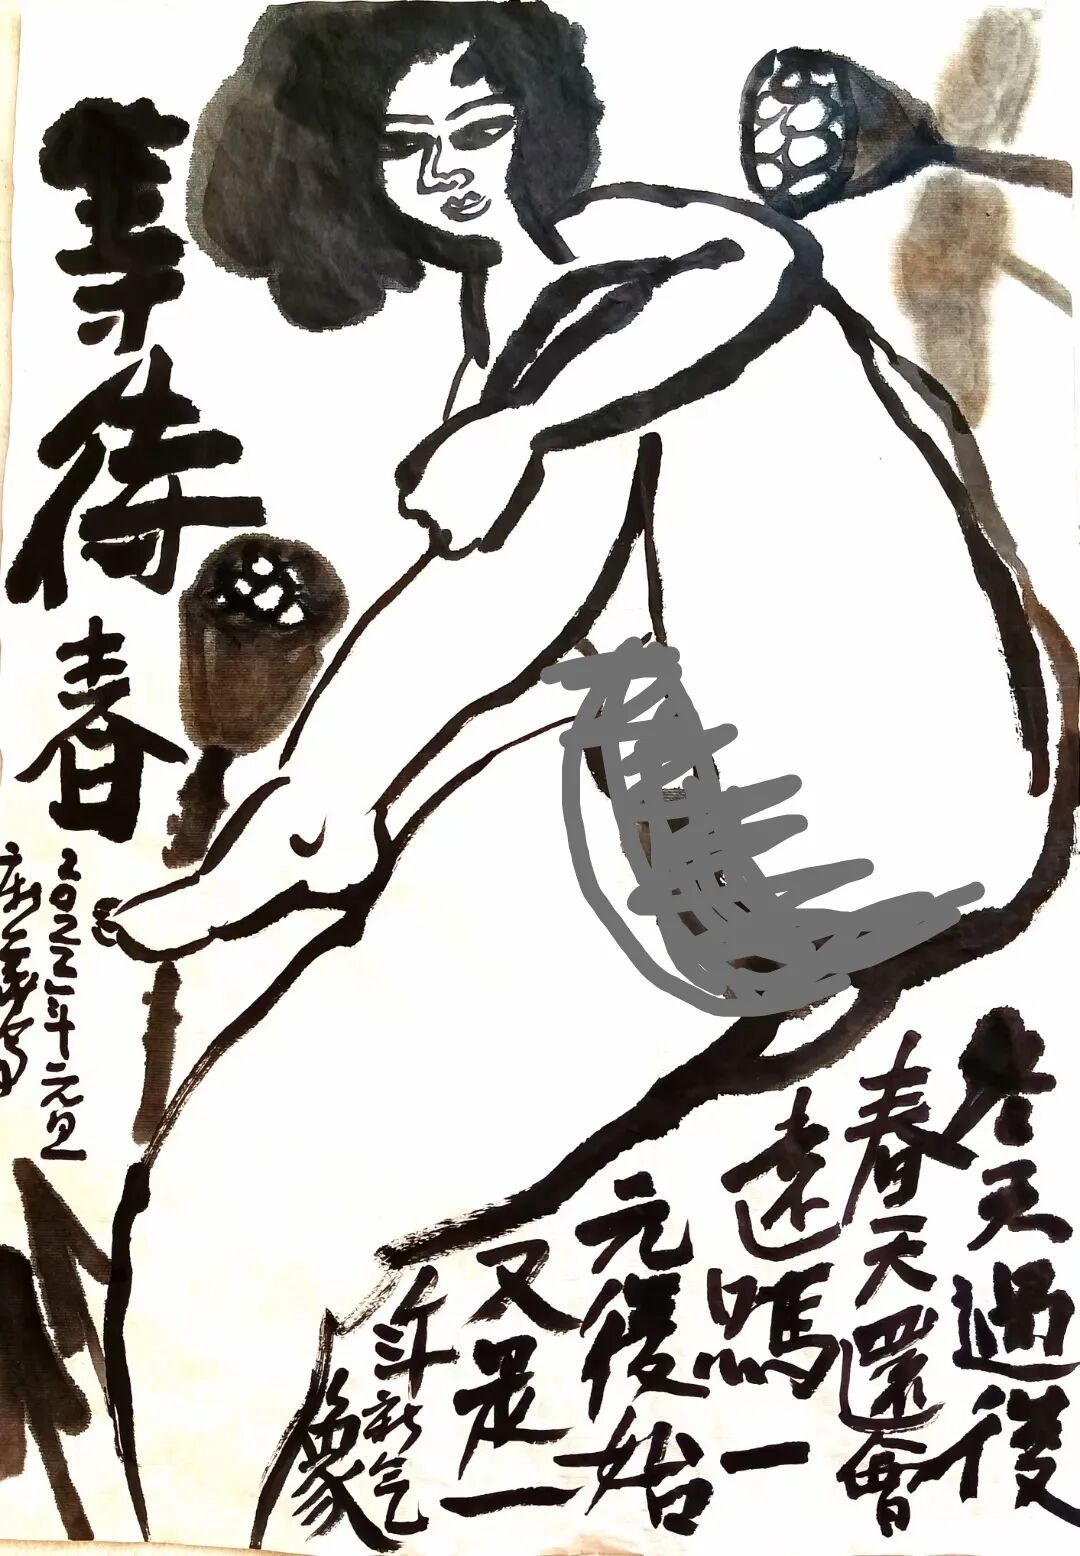 等待春
2022年元旦
冬天過後
春天還會
遠嗎一
元復始
又是一
年新气
象